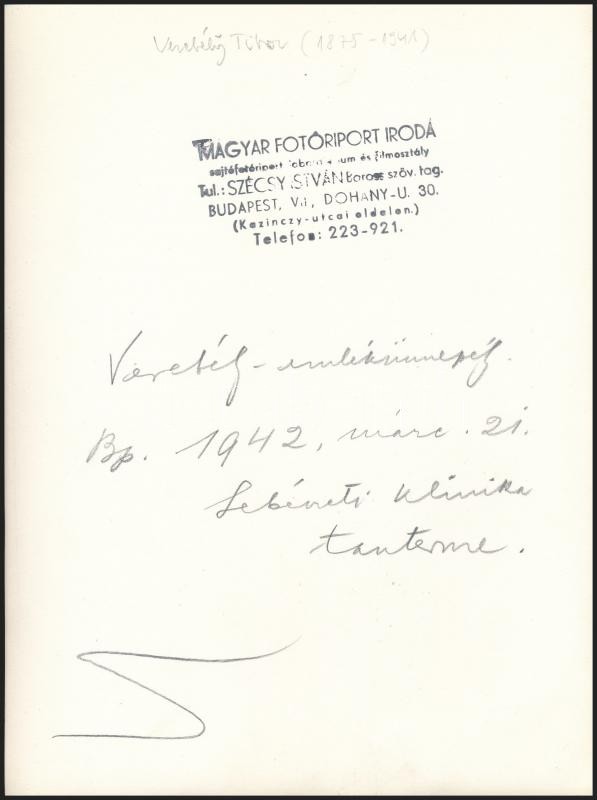 Verebélÿ Tibor (1875-1941)
MAGYAR FOTÓRIPORT IRODA
sajtófotóriport és filmosztály
Tul.: SZÉCSY ISTVÁN szöv. tag.
BUDAPEST, VII, DOHANY-U. 30.
(Kazinczy-utcai oldalon.)
Telefon: 223-921.
Verebélÿ-emlékünnepély.
Bp. 1942, márc. 21.
Sebészeti klinika
tanterme.